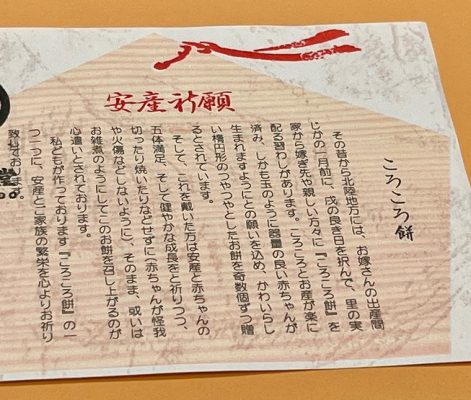 安産祈願
ころころ餅
その昔から北陸地方には、お嫁さんの出産間
じかの一月前に、戌の良き日を択んで、里の実
家から嫁ぎ先や親しい方々に『ころころ餅』を
配る習わしがあります。ころころとお産が楽に
済み、しかも玉のように器量の良い赤ちゃんが
生まれますようにとの願いを込め、かわいらし
い楕円形のつやつやとしたお餅を奇数個ずつ贈
るとされています。
そして、これを戴いた方は安産と赤ちゃんの
五体満足、そして健やかな成長をと祈りつつ、
切ったり焼いたりなどせずに(赤ちゃんが怪我
や火傷などしないように)、そのまま、或いは
お雑煮のようにしてこのお餅を召し上がるのが
心遣いとされております。
私どもが作っております『ころころ餅』の一
つ一つに、安産とご家族の繁栄を心よりお祈り
致しております。
堂